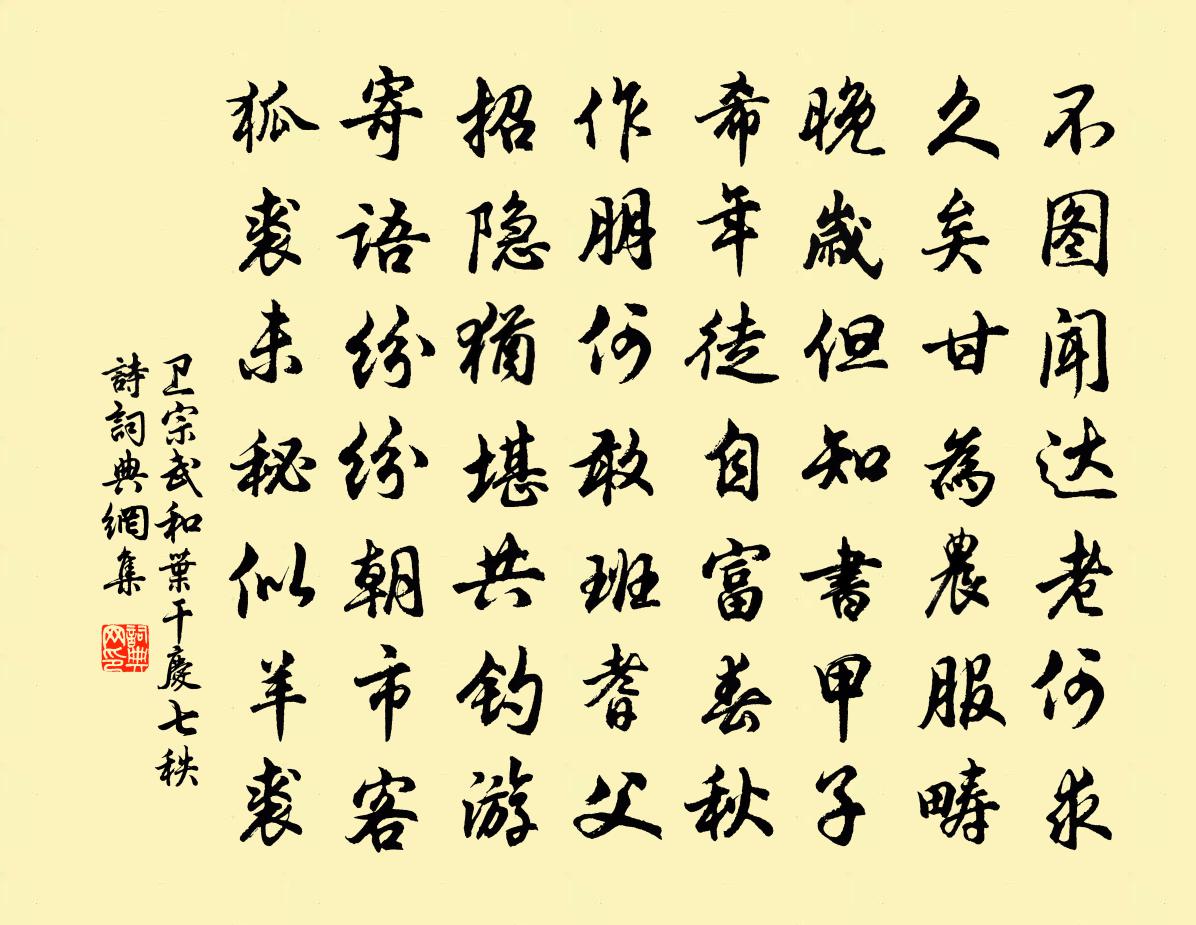 不图闻达老何求
久矣甘為農服畴
晚歲但知書甲子
希年徒自富春秋
作朋何敢班耆父
招隐猶堪共钓游
寄语纷纷朝市客
狐裘未秘似羊裘
卫宗武和葉干慶七秩
詩詞典網集
詞典網印